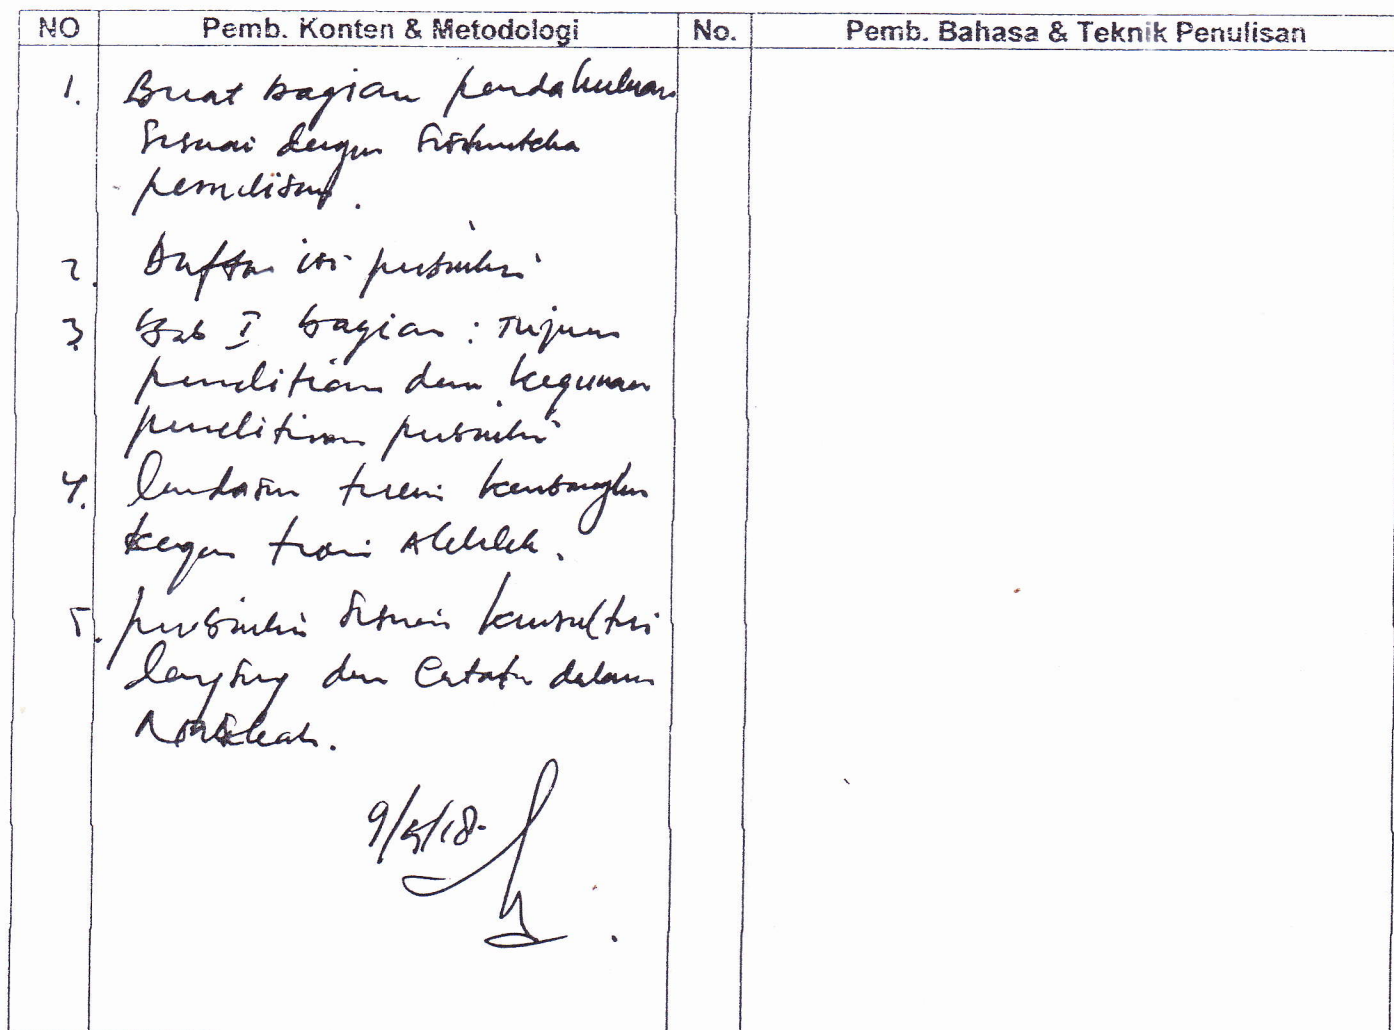 NO Pemb. Konten & Metodologi No. Pemb. Bahasa & Teknik Penulisan
1. Buat bagian pendahuluan
sesuai dengan sistematika
penulisan.
2. Daftar isi perbaiki
3. Bab I bagian : Tujuan
penelitian dan kegunaan
penelitian perbaiki
4. landasan teori kembangkan
5. perbaiki sesuai konsultasi
langsung dan catatan dalam
naskah.
9/5/18